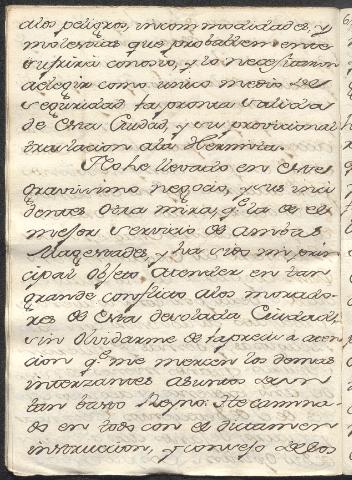 alos peligros, incommodidades, y
molestias que probablemente
sufriria conosio, y lo necesitaron
a elegir como unico medio de
seguridad la pronta salida
de esta Ciudad, y su provicional
traslacion ala Hermita.
No he llevado en este
gravissimo negocio, y sus inci
dentes otra mira, qe la de el
mejor servicio de ambas
Magestades, y ha sido mi prin
cipal objeto atender en tan
grande conflicto alos morado-
res de esta desolada Ciudad,
sin olvidarme de la precisa aten
cion qe me merecen los demas
interezantes asuntos de un
tan basto Reyno. He camina-
do en todo con el dictamen
instruccion, y consejo de los